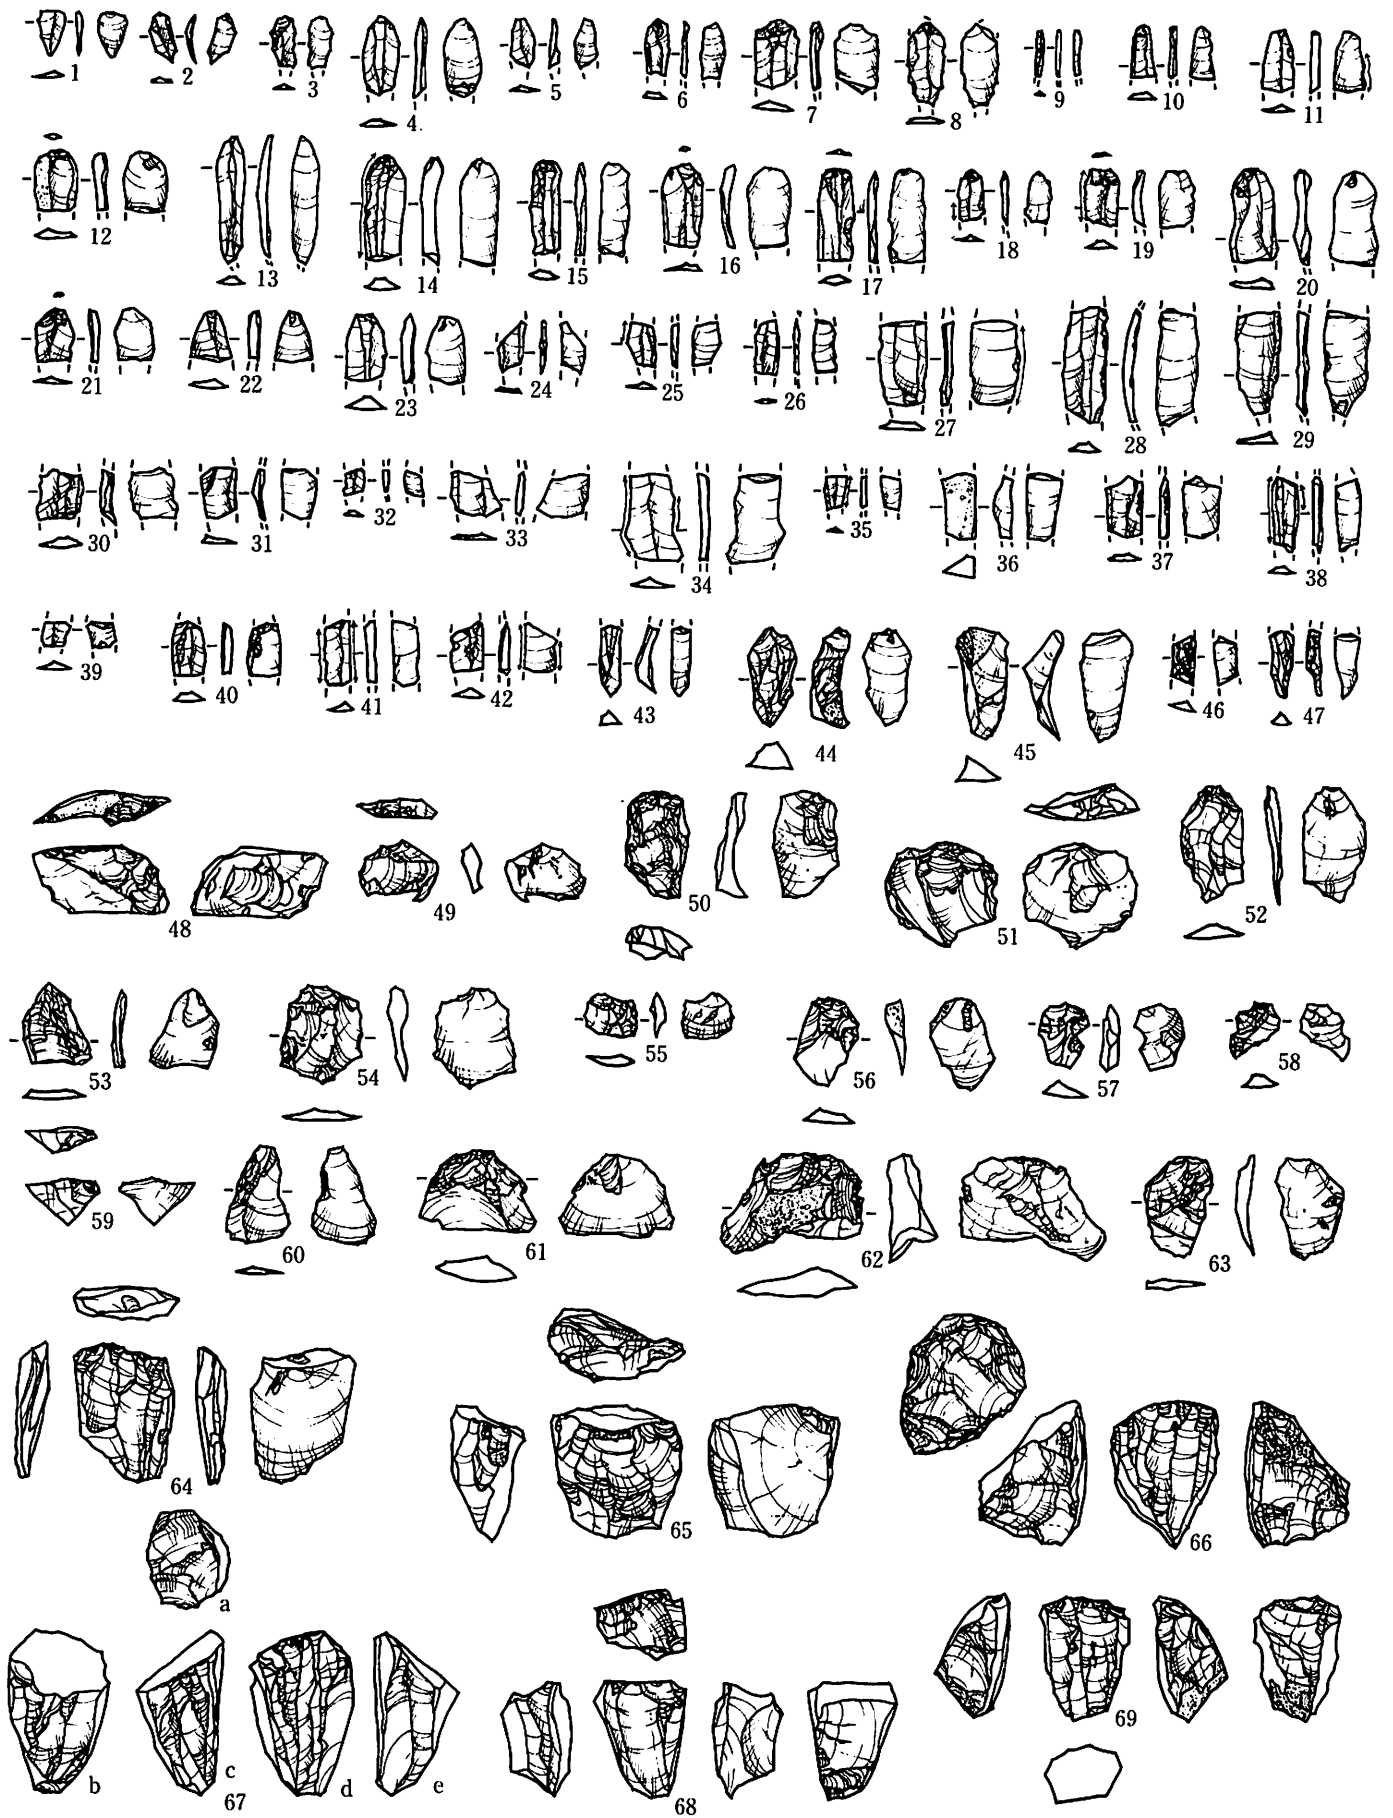 1 2 3 4. 5 6 7 8 9 10 11
12 13 14 15 16 17 18 19 20
21 22 23 24 25 26 27 28 29
30 31 32 33 34 35 36 37 38
39 40 41 42 43 44 45 46 47
48 49 50 51 52
53 54 55 56 57 58
59 60 61 62 63
64 65 66
a
b c d e 67 68 69